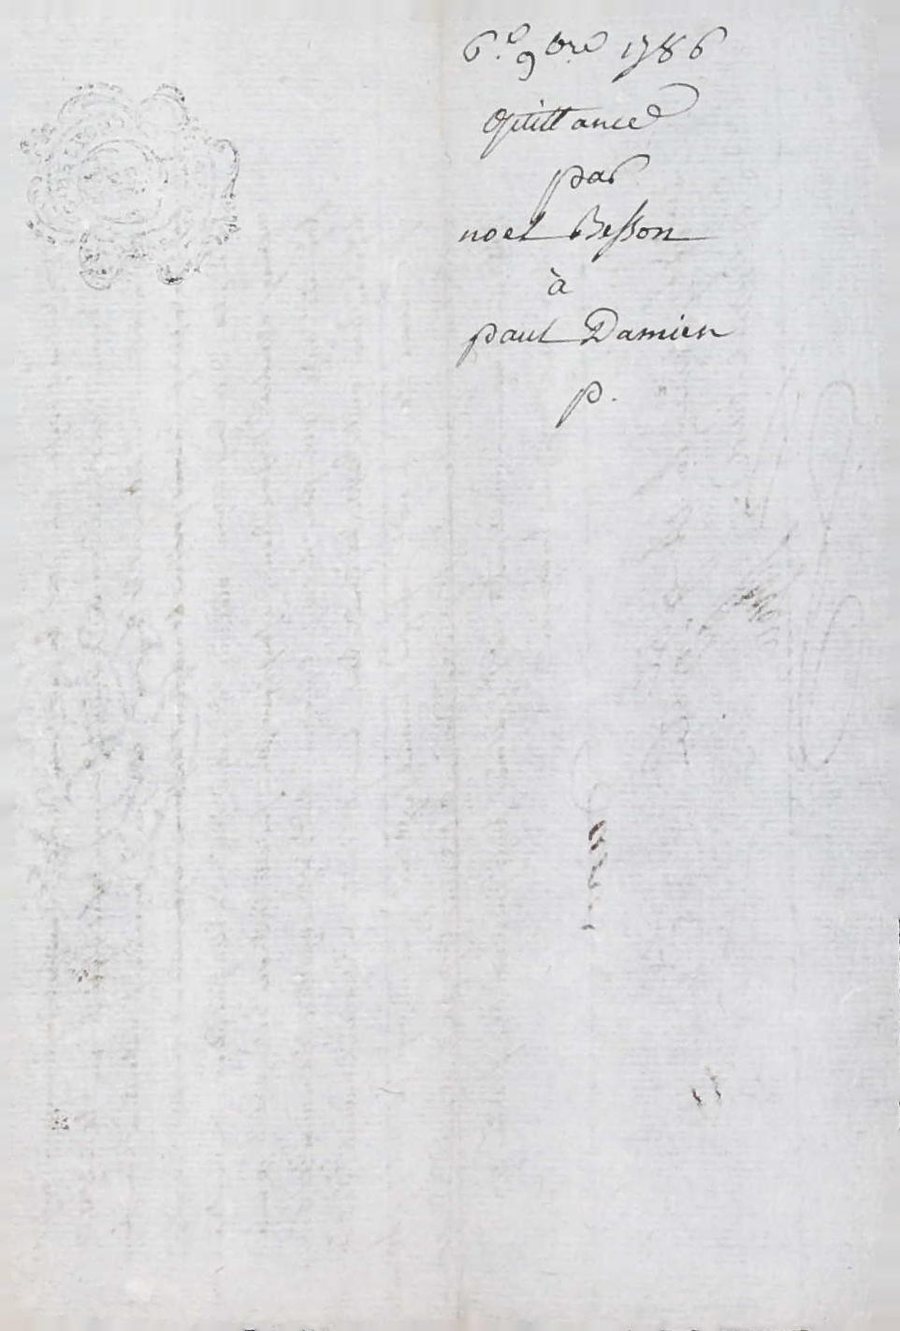 6.e 9bre 1786
Quittance
par
noel Besson
à
paul Damien
p.